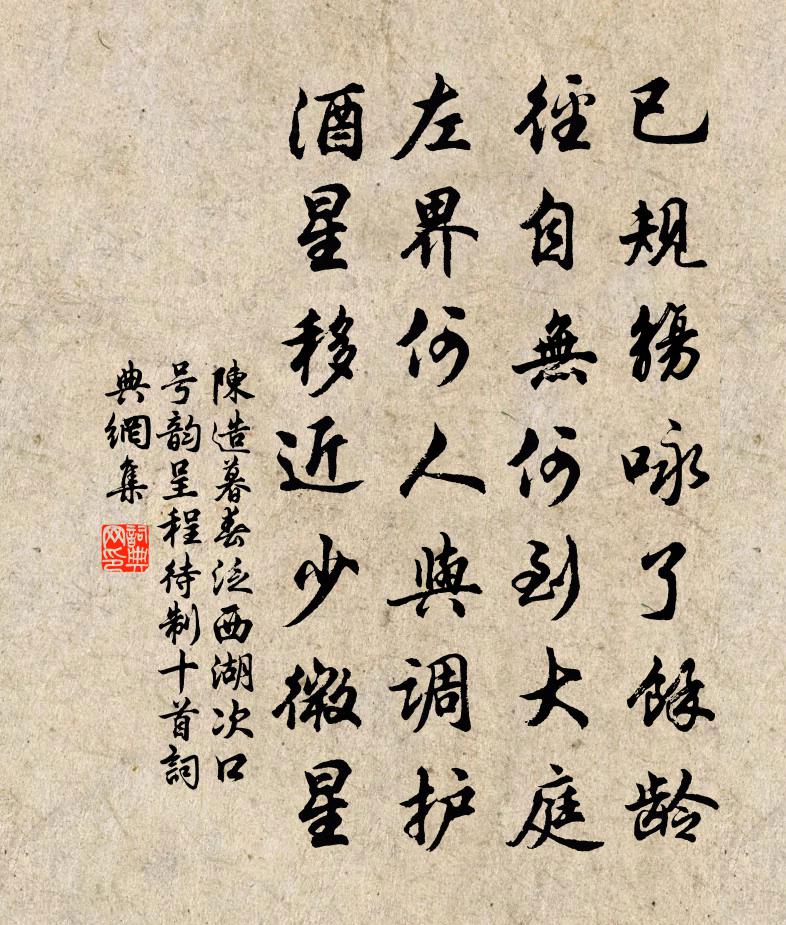 已規觴咏了餘龄
徑自無何到大庭
左界何人與调护
酒星移近少微星
陳造暮春泛西湖次口
号韵呈程待制十首詞
典網集
詞典网印